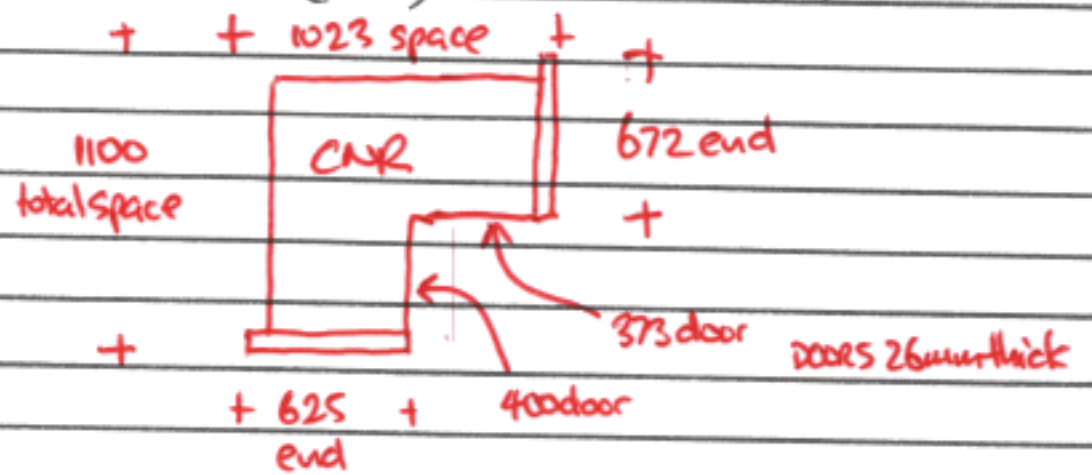 1023 space
672 end
1100
total space
CNR
373 door
DOORS 26mm thick
400 door
625
end